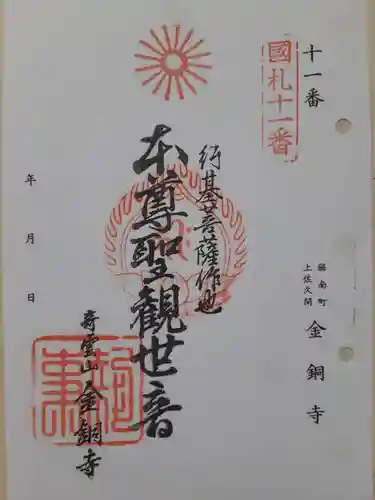 十一番
國札十一番
鋸南町
上佐久間
金銅寺
行基菩薩作也
本尊聖觀世音
奇雲山金銅寺
年月日